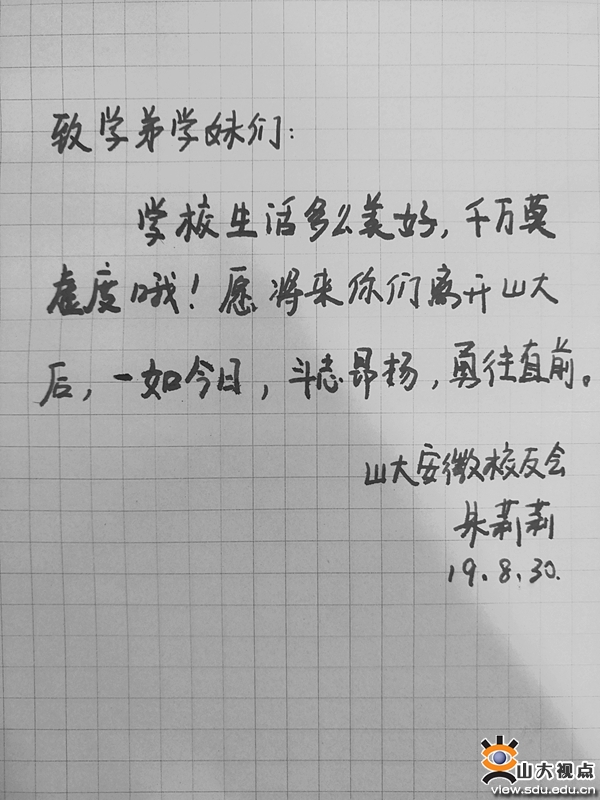 致学弟学妹们：
学校生活多么美好，千万莫
虚度哦！愿将来你们离开山大
后，一如今日，斗志昂扬，勇往直前。
山大安徽校友会
朱莉莉
19.8.30.
山大视点
view.sdu.edu.cn